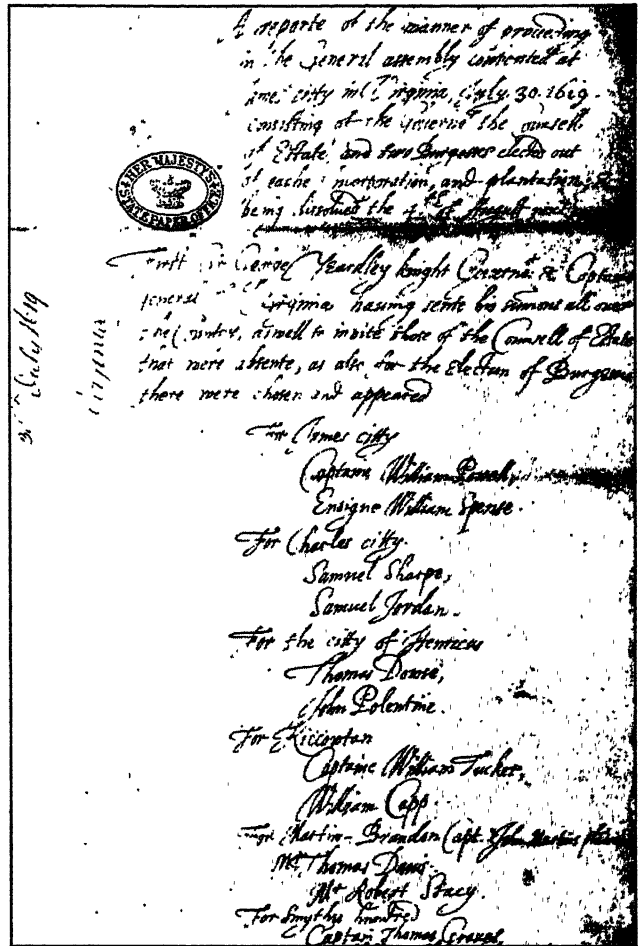 A reporte of the manner of proceeding
in the General assembly convented at
James citty in Virginia, July. 30. 1619.
consisting of the Governor, the Counsell
of Estate, and two Burgesses elected out
of eache incorporation, and plantation,
being dissolved the 4th of August next
HER MAJESTY'S
STATE PAPER OFFICE
First Sir George Yeardley knight Governor & Captaine
general of Virginia having sente his sumons all over
the Country, aswell to invite those of the Counsell of Estate
that were absente, as also for the election of Burgesses
there were chosen and appeared
30 July 1619
Virginia
For James citty
Captaine William Powell,
Ensigne William Spense.
For Charles citty.
Samuel Sharpe,
Samuel Jordan.
For the citty of Henricus
Thomas Dowse,
John Polentine.
For Kiccowtan
Captaine William Tucker,
William Capp.
For Martin-Brandon Capt. John Martins
Mr Thomas Davis.
Mr Robert Stacy.
For Smythes hundred
Captain Thomas Graves,